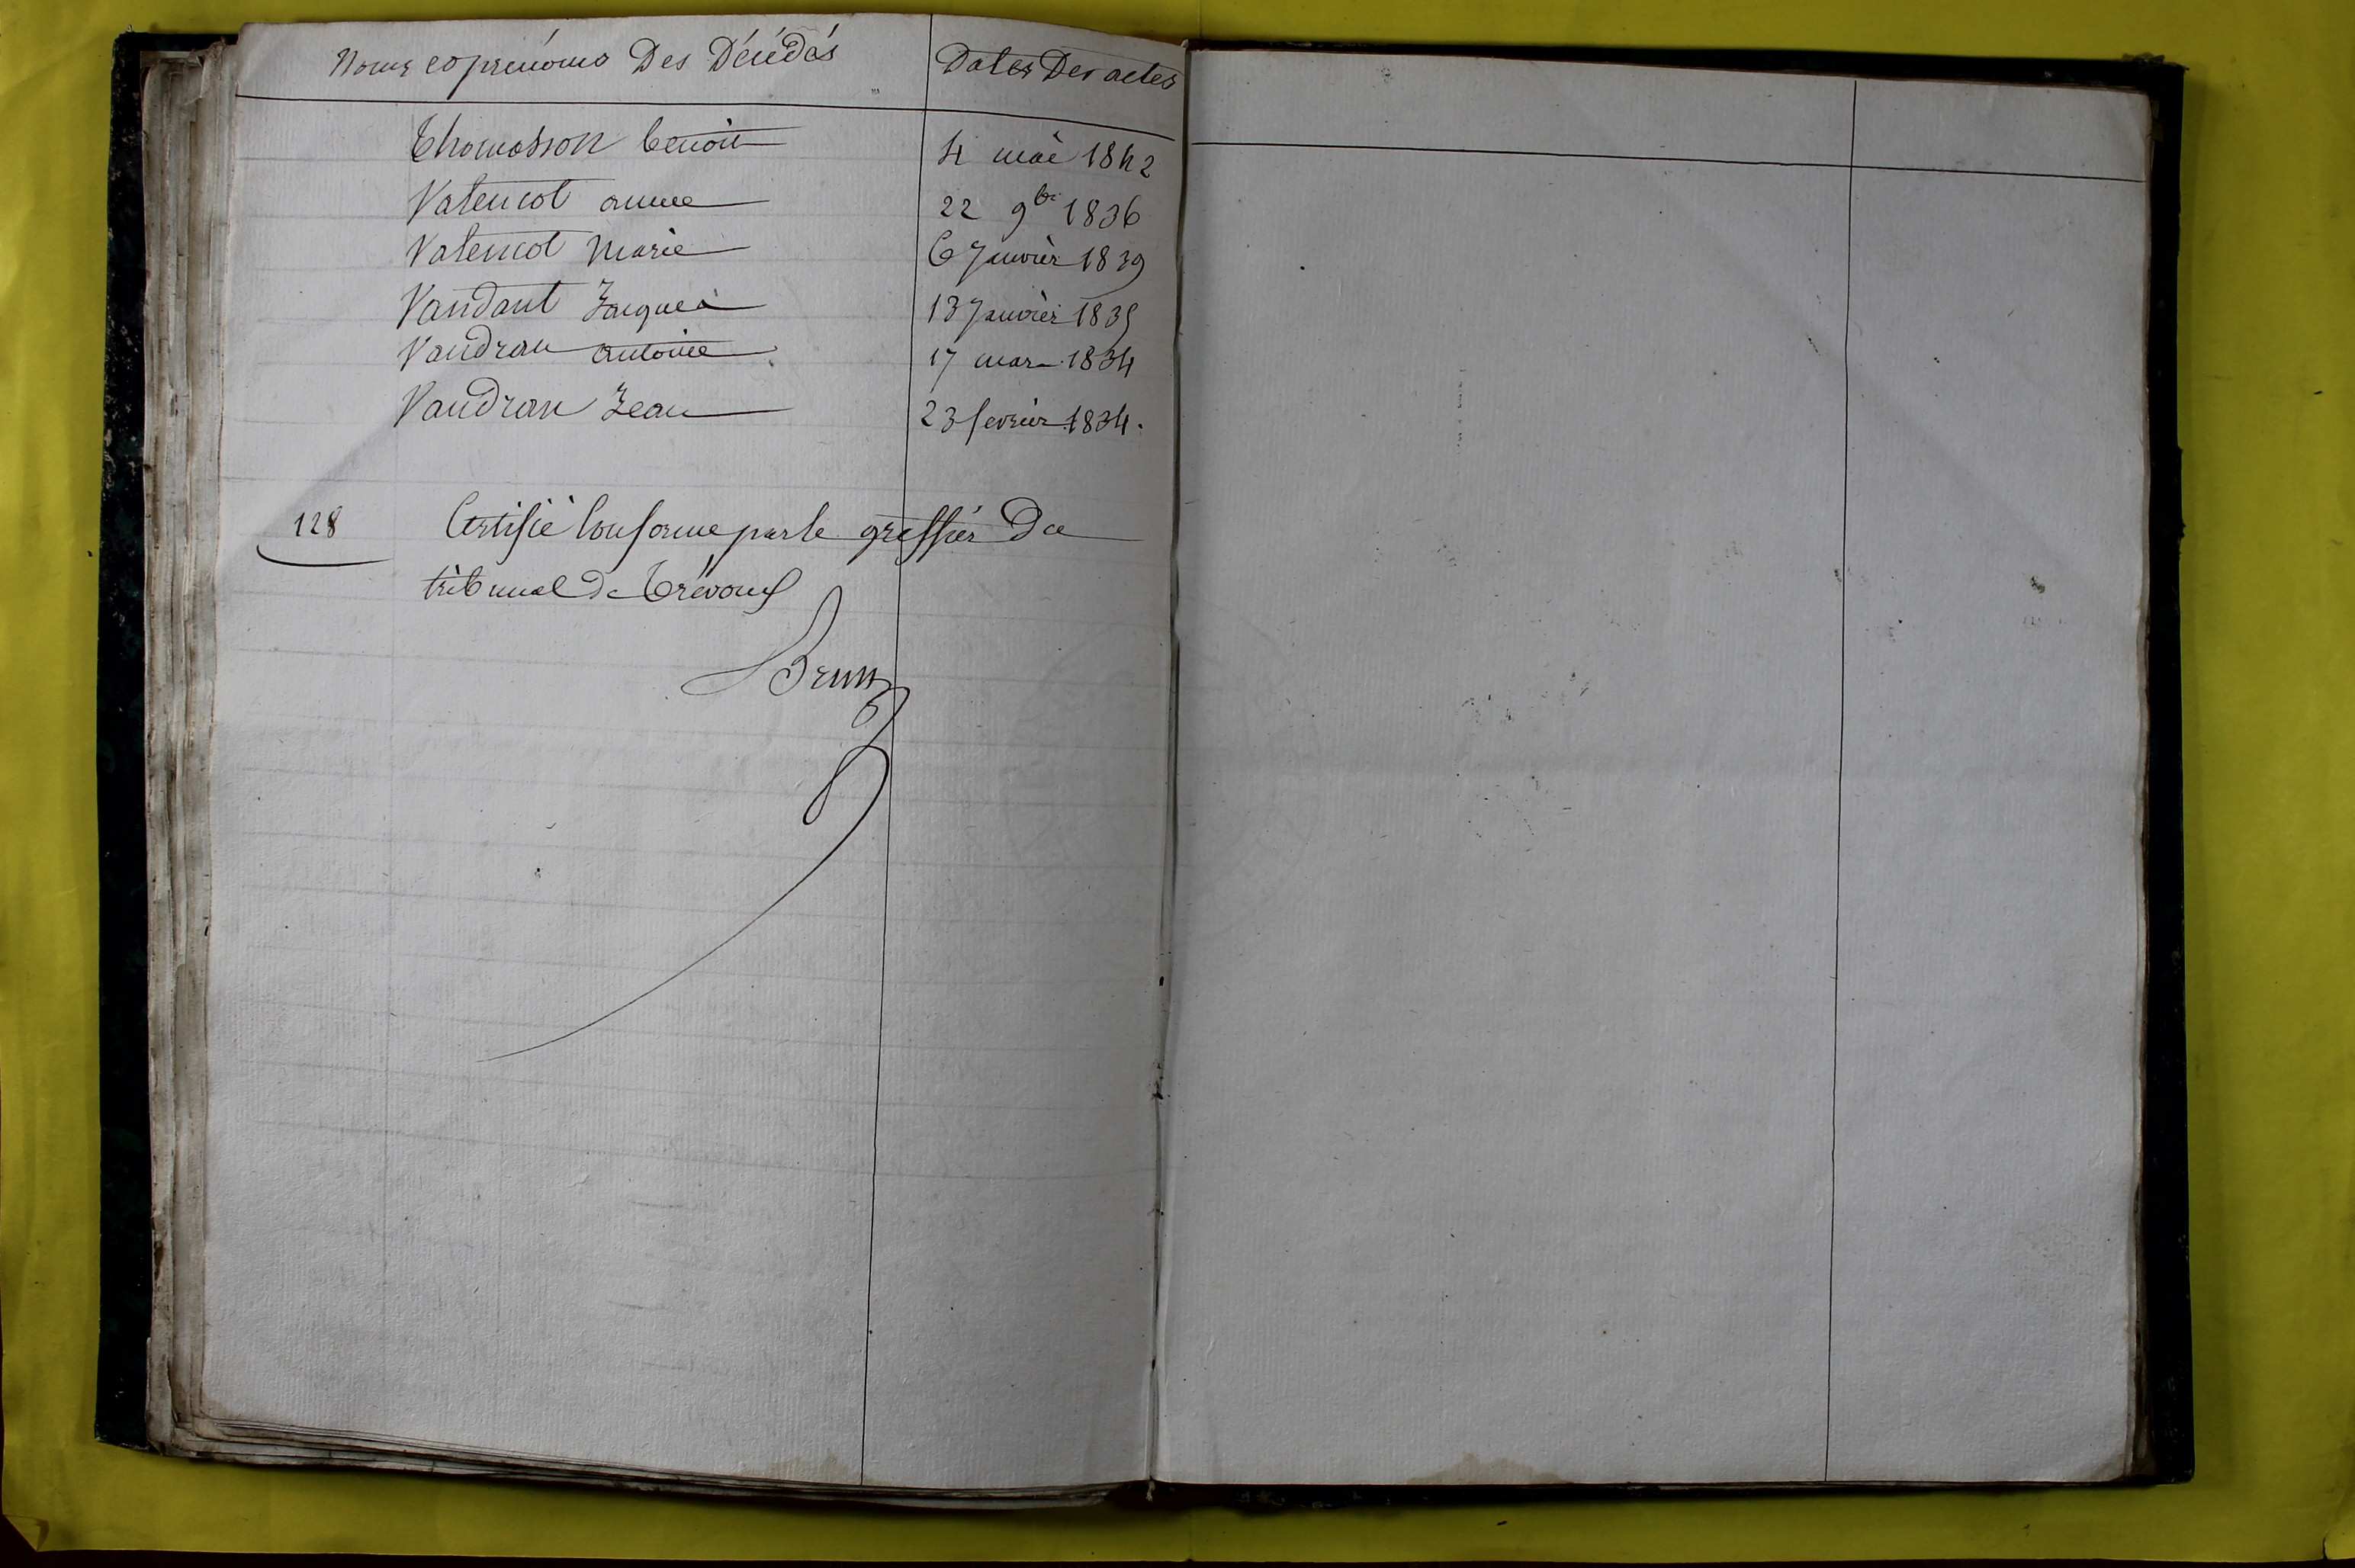 Noms et prénoms Des Décédés Dates Des actes
Thomasson benoit 4 mai 1842
Valencot anne 22 9bre 1836
Valencot Marie 6 Janvier 1839
Vandant Jacques 13 Janvier 1835
Vaudran antoine 17 mars 1834
Vaudran Jean 23 fevrier 1834.
128 Certifié Conforme par le greffier Du
tribunal de Trévoux
Brun